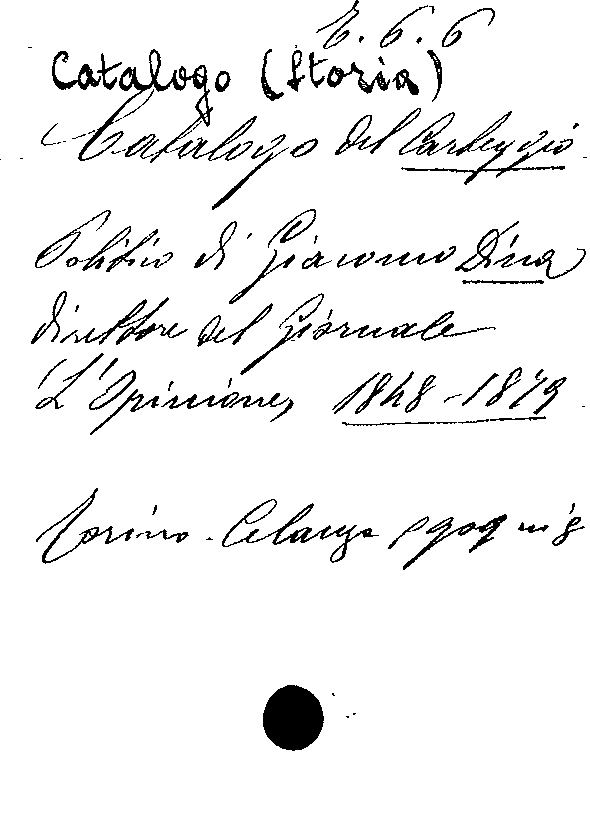 E. 6. 6
Catalogo (Storia)
Catalogo del Carteggio
Politico di Giacomo Dina
direttore del Giornale
L'Opinione, 1848-1879
Torino. Celanza 1909 in 8